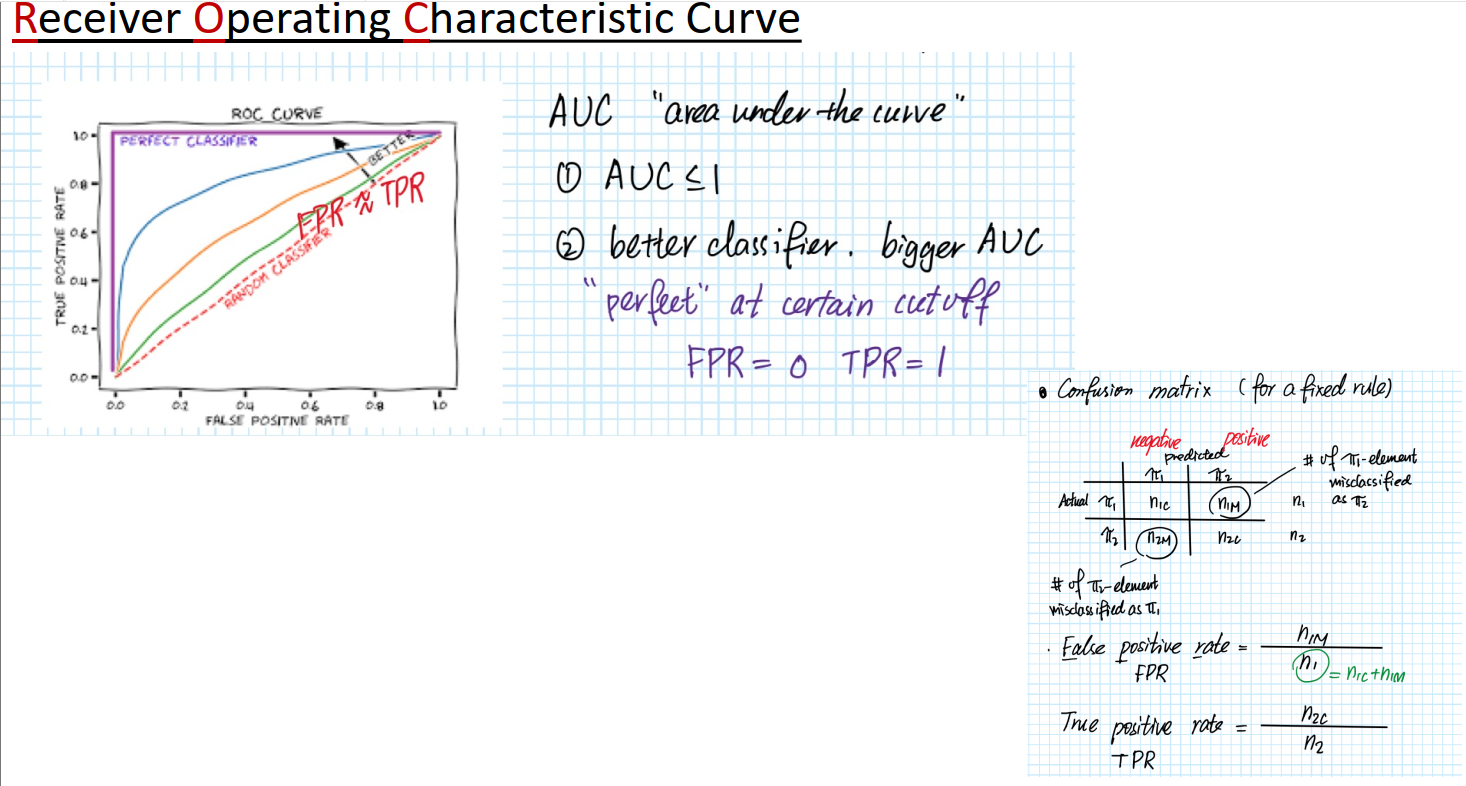 Receiver Operating Characteristic Curve
ROC CURVE
PERFECT CLASSIFIER
BETTER
FPR ≈ TPR
RANDOM CLASSIFIER
TRUE POSITIVE RATE
1.0
0.8
0.6
0.4
0.2
0.0
0.0 0.2 0.4 0.6 0.8 1.0
FALSE POSITIVE RATE
AUC "area under the curve"
① AUC ≤ 1
② better classifier. bigger AUC
"perfect" at certain cutoff
FPR = 0 TPR = 1
• Confusion matrix (for a fixed rule)
negative positive
predicted
π₁ π₂
Actual π₁ n₁C n₁M n₁
π₂ n₂M n₂C n₂
# of π₁-element
misclassified
as π₂
# of π₂-element
misclassified as π₁
· False positive rate = n₁M / n₁ = n₁C + n₁M
FPR
True positive rate = n₂C / n₂
TPR